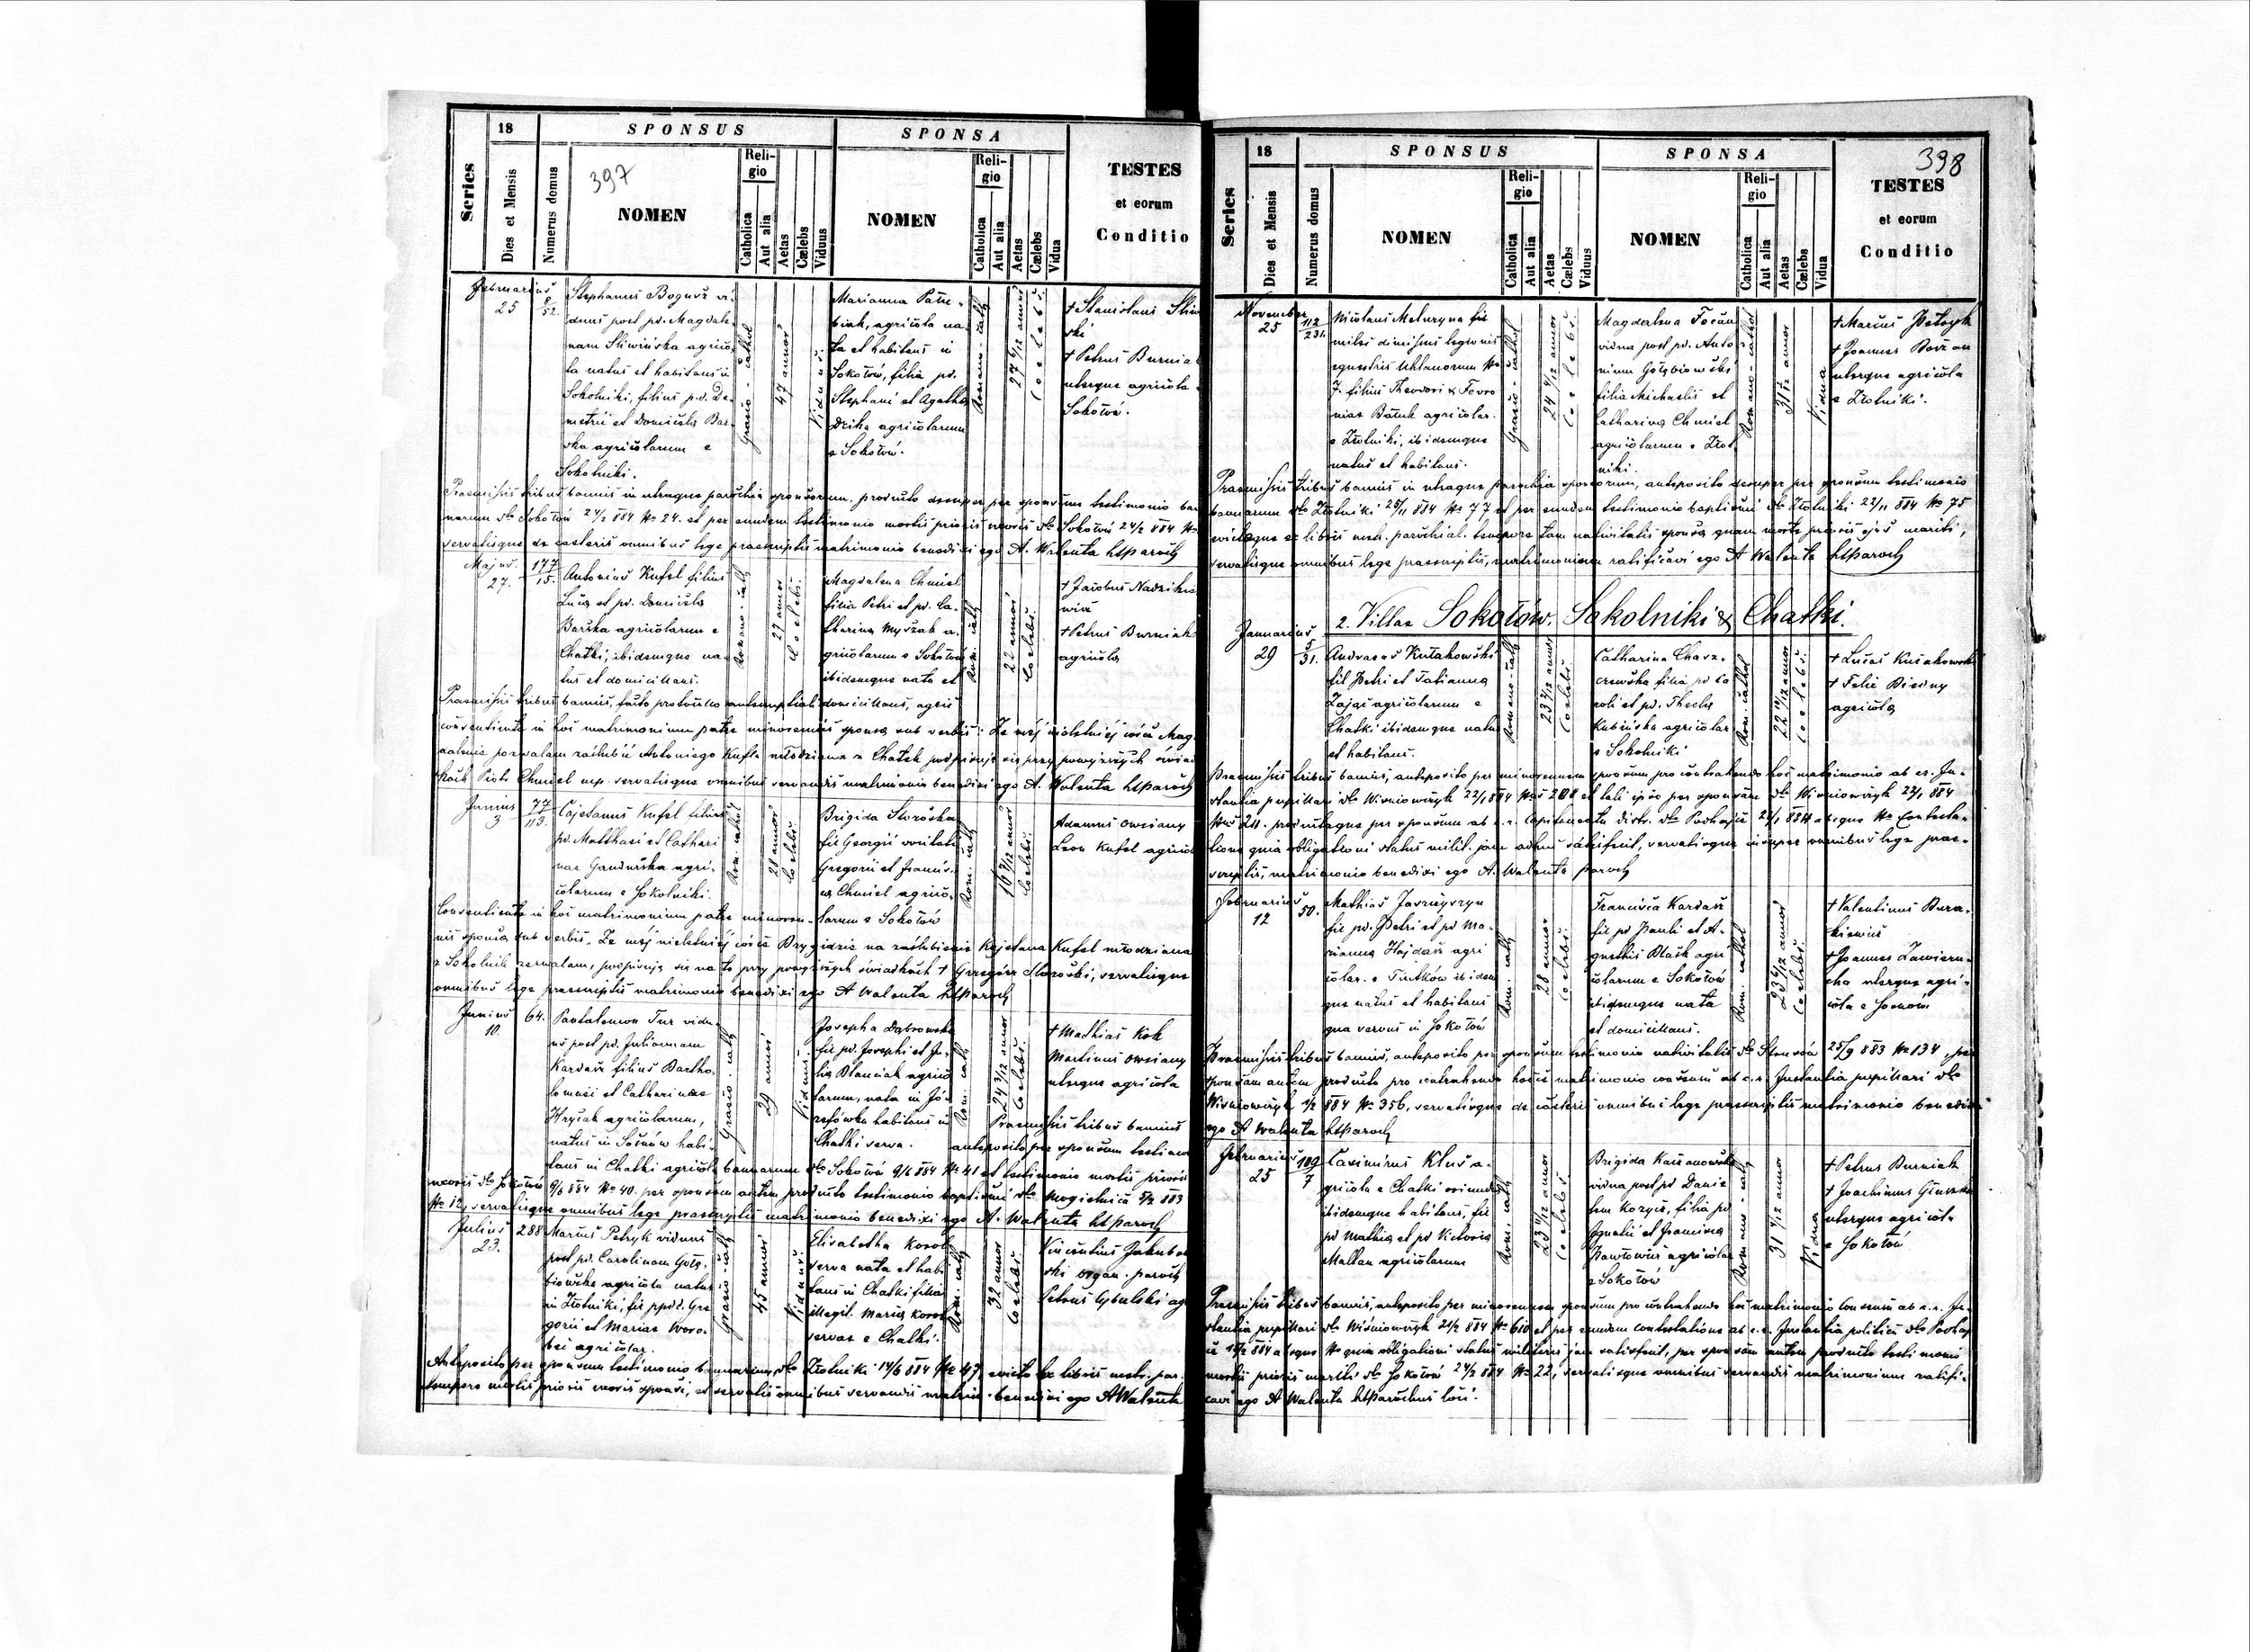 18
SPONSUS
SPONSA
Series
Dies et Mensis
Numerus domus
397
NOMEN
Reli-
gio
Catholica
Aut alia
Aetas
Cælebs
Viduus
NOMEN
Reli-
gio
Catholica
Aut alia
Aetas
Cælebs
Vidua
TESTES
et eorum
Conditio
Februarius
25
8
52.
Stephanus Bogusz vi-
duus post pd. Magdale-
nam Sliwińska agrico-
la natus et habitans in
Sokolniki, filius pd. De-
metrii et Domicela Bar-
ska agricolarum e
Sokolniki.
Graeco-cathol
47 annor
Viduus.
Marianna
agricola na-
ta et habitans in
Sokołów, filia pd.
Stephani et Agatha
Dzika agricolarum
e Sokołów.
Romano-cath
27 6/12 annor
Coelebs.
† Stanislaus
ski
† Petrus Burniak
uterque agricola
Sokołów.
Praemissis tribus bannis in utraque parochia sponsorum, producto desuper per sponsum testimonio ban
narum dto Sokołów 24/2 884 No 24. et per eundem testimonio mortis prioris uxoris dto Sokołów 24/2 884 No
servatisque de caeteris omnibus lege praescriptis matrimonio benedixi ego A. Walenta ltsparoch
Majus.
27.
177
15.
Antonius Kufel filius
Luca et pd. Domicela
Barska agricolarum e
Chatki, ibidemque na-
tus et domicilians.
Romano-cath
27 annor
Coelebs.
Magdalena Chmiel
filia Petri et pd. Ca-
tharina Myszak a-
gricolarum e Sokołów
ibidemque nata et
domicilians, agric
Rom. cath
22 annor
Coelebs.
† Jacobus
wicz
† Petrus Burniak
agricola
Praemissis tribus bannis, facto protocollo antenuptiali
consentiente in hoc matrimonium patre minorennis sponsa sub verbis: Że mej nieletniej córce Mag
dalenie pozwalam zaślubić Antoniego Kufla młodziana z Chatek podpisuję się przy powyższych świad
kach Piotr Chmiel mp. servatisque omnibus servandis matrimonio benedixi ego A. Walenta ltsparoch
Junius
3
77
113.
Cajetanus Kufel filius
pd. Matthaei et Cathari
nae agri-
colarum e Sokolniki.
Rom. cathol
28 annor
Coelebs
Brigida Storoska
fil Georgii
Gregorii et Francis-
ca Chmiel agrico-
larum e Sokołów
Rom. cath
Coelebs
Adamus Owsiany
Leon Kufel agricol
Consentiente in hoc matrimonium patre minoren-
nis sponsa sub verbis. Że mej nieletniej córce Brygidzie na zaślubienie Kajetana Kufel młodziana
z Sokolnik zezwalam, podpisuję się na to przy powyższych świadkach † Grzegórz Storoski, servatisque
omnibus lege praescriptis matrimonio benedixi ego A Walenta ltsparoch
Junius
10.
64.
Pantalemon Tur vidu-
us post pd. Juliannam
Kardasz filius Bartho-
lomaei et Catharinae
Hryciak agricolarum,
natus in Sosnów habi-
tans in Chatki agricola
Graeco-cath
29 annor
Viduus.
Josepha Dąbrowska
fil pd. Josephi et Ju-
lia Blanciak agrico
larum, nata in Jó-
zefówka habitans in
Chatki serva.
Rom. cath
24 3/12 annor
Coelebs.
† Mathias Kok
Martinus Owsiany
uterque agricola
Praemissis tribus bannis
anteposito per sponsum testimo
bannarum dto Sokołów 9/6 884 No 41 et testimonio mortis prioris
uxoris dto Sokołów 9/6 884 No 40. per sponsam autem producto testimonio baptismi dto Mogielnica 5/2 883
No 12, servatisque omnibus lege praescriptis matrimonio benedixi ego A. Walenta ltsparoch
Julius
23.
288
Marcus Petryk viduus
post pd. Carolinam Gołę-
biowska agricola natus
in Złotniki, fil ppdd. Gre
gorii et Mariae Woro-
bei agricolar.
Graeco-cath
45 annor
Viduus.
Elisabetha Korol
serva nata et habi
tans in Chatki filia
illegit. Maria Korol
servae e Chatki.
Rom. cath
32 annor
Coelebs.
Vincentius Jakubow
ski organ. paroch
Petrus Cybulski ag
Anteposito per sponsum testimonio bannarum, dto Złotniki 14/6 884 No 47, evicto ex libris metr. par.
tempore mortis prioris uxoris sponsi, et servatis omnibus servandis matrim. benedixi ego A Walenta
18
SPONSUS
SPONSA
398
Series
Dies et Mensis
Numerus domus
NOMEN
Reli-
gio
Catholica
Aut alia
Aetas
Cælebs
Viduus
NOMEN
Reli-
gio
Catholica
Aut alia
Aetas
Cælebs
Vidua
TESTES
et eorum
Conditio
November
25
112
231.
Nicolaus Maturyna fil
miles dimissus legionis
equestris Uhlanorum No
7. filius Theodori & Fevro
niae Baluk agricolar.
e Złotniki, ibidemque
natus et habitans.
Graeco-cathol
24 4/12 annor
Coelebs.
Magdalena
vidua post pd. Anto
nium Gołębiowski
filia Michaelis et
Catharina Chmiel
agricolarum e Złot
niki.
Romano-cathol
Vidua
† Marcus Petryk
† Joannes
uterque agricola
e Złotniki.
Praemissis tribus bannis in utraque parochia sponsorum, anteposito desuper per sponsum testimonio
bannarum dto Złotniki 25/11 884 No 77 et per eundem testimonio baptismi dto Złotniki 22/11 884 No 75
evictoque ex libris metr. parochial. tempore tam nativitatis sponsa quam mortis prioris ejus mariti,
servatisque omnibus lege praescriptis, matrimonium ratificavi ego A Walenta ltsparoch
2. Villae Sokołów. Sokolniki & Chatki.
Januarius
29
5
31.
Andreas Kułakowski
fil Petri et Tatianna
Zając agricolarum e
Chatki ibidemque natus
et habitans.
Romano-cath
23 2/12 annor
Coelebs
Catharina Charz-
czewska filia pd Ca
roli et pd. Thecla
Kubińska agricolar
e Sokolniki
Rom. cathol
22 annor
Coelebs.
† Lucas Kułakowski
† Felix Biedny
agricola
Praemissis tribus bannis, anteposito per minorennem sponsum pro contrahendo hoc matrimonio ab c.r. In-
stantia pupillari dto Wiśniowczyk 22/1 884 No 208 et tali ipso per sponsam dto Wiśniowczyk 22/1 884
No 211. productaque per sponsum ab c.r. Capitaneatu distr. dto Podhajce 884 absque No Contesta-
tione quia obligationi status milit. jam satisfecit, servatisque insuper omnibus lege prae-
scriptis, matrimonio benedixi ego A. Walenta paroch
Februarius
12
50.
Mathias
fil pd. Petri et pd Ma-
rianna Hajdasz agri
colar. e ibidem
que natus et habitans
qua servus in Sokołów
Rom. cath
28 annor
Coelebs
Francisca Kardasz
fil pd Pauli et A-
gnethis Błasik agri
colarum e Sokołów
ibidemque nata
et domicilians.
Rom. cathol
23 6/12 annor
Coelebs.
† Valentinus Bura-
kiewicz
† Joannes Zawieru-
cha uterque agri-
cola e Sosnów
Praemissis tribus bannis, anteposito per sponsum testimonio nativitatis dto 25/9 883 No 134, per
sponsam autem producto pro contrahendo hocce matrimonio consensu ab c.r. Instantia pupillari dto
Wiśniowczyk 1/2 884 No 356, servatisque de caeteris omnibus lege praescriptis matrimonio benedixi
ego A Walenta ltsparoch
Februarius
25
109
7
Casimirus Klus a-
gricola e Chatki oriundus
ibidemque habitans, fil
pd Mathia et pd Victoria
Maltan agricolarum
Rom. cath
23 11/12 annor
Coelebs
Brigida
vidua post pd Danie
lem Kozyra, filia pd
Ignatii et Francisca
Pawłowicz agricolar
e Sokołów
Romano-cath
31 1/12 annor
Vidua
† Petrus Burniak
† Joachimus
uterque agricola
e Sokołów
Praemissis tribus bannis, anteposito per minorennem sponsum pro contrahendo hoc matrimonio Consensu ab c.r. In-
stantia pupillari dto Wiśniowczyk 21/2 884 No 610 et per eundem contestatione ab c.r. Instantia politica dto Podhaj
ce 884 absque No quia obligationi status militaris jam satisfecit, per sponsam autem producto testimonio
mortis prioris mariti dto Sokołów 24/2 884 No 22, servatisque omnibus servandis matrimonium ratifi-
cavi ego A Walenta ltsparochus loci.